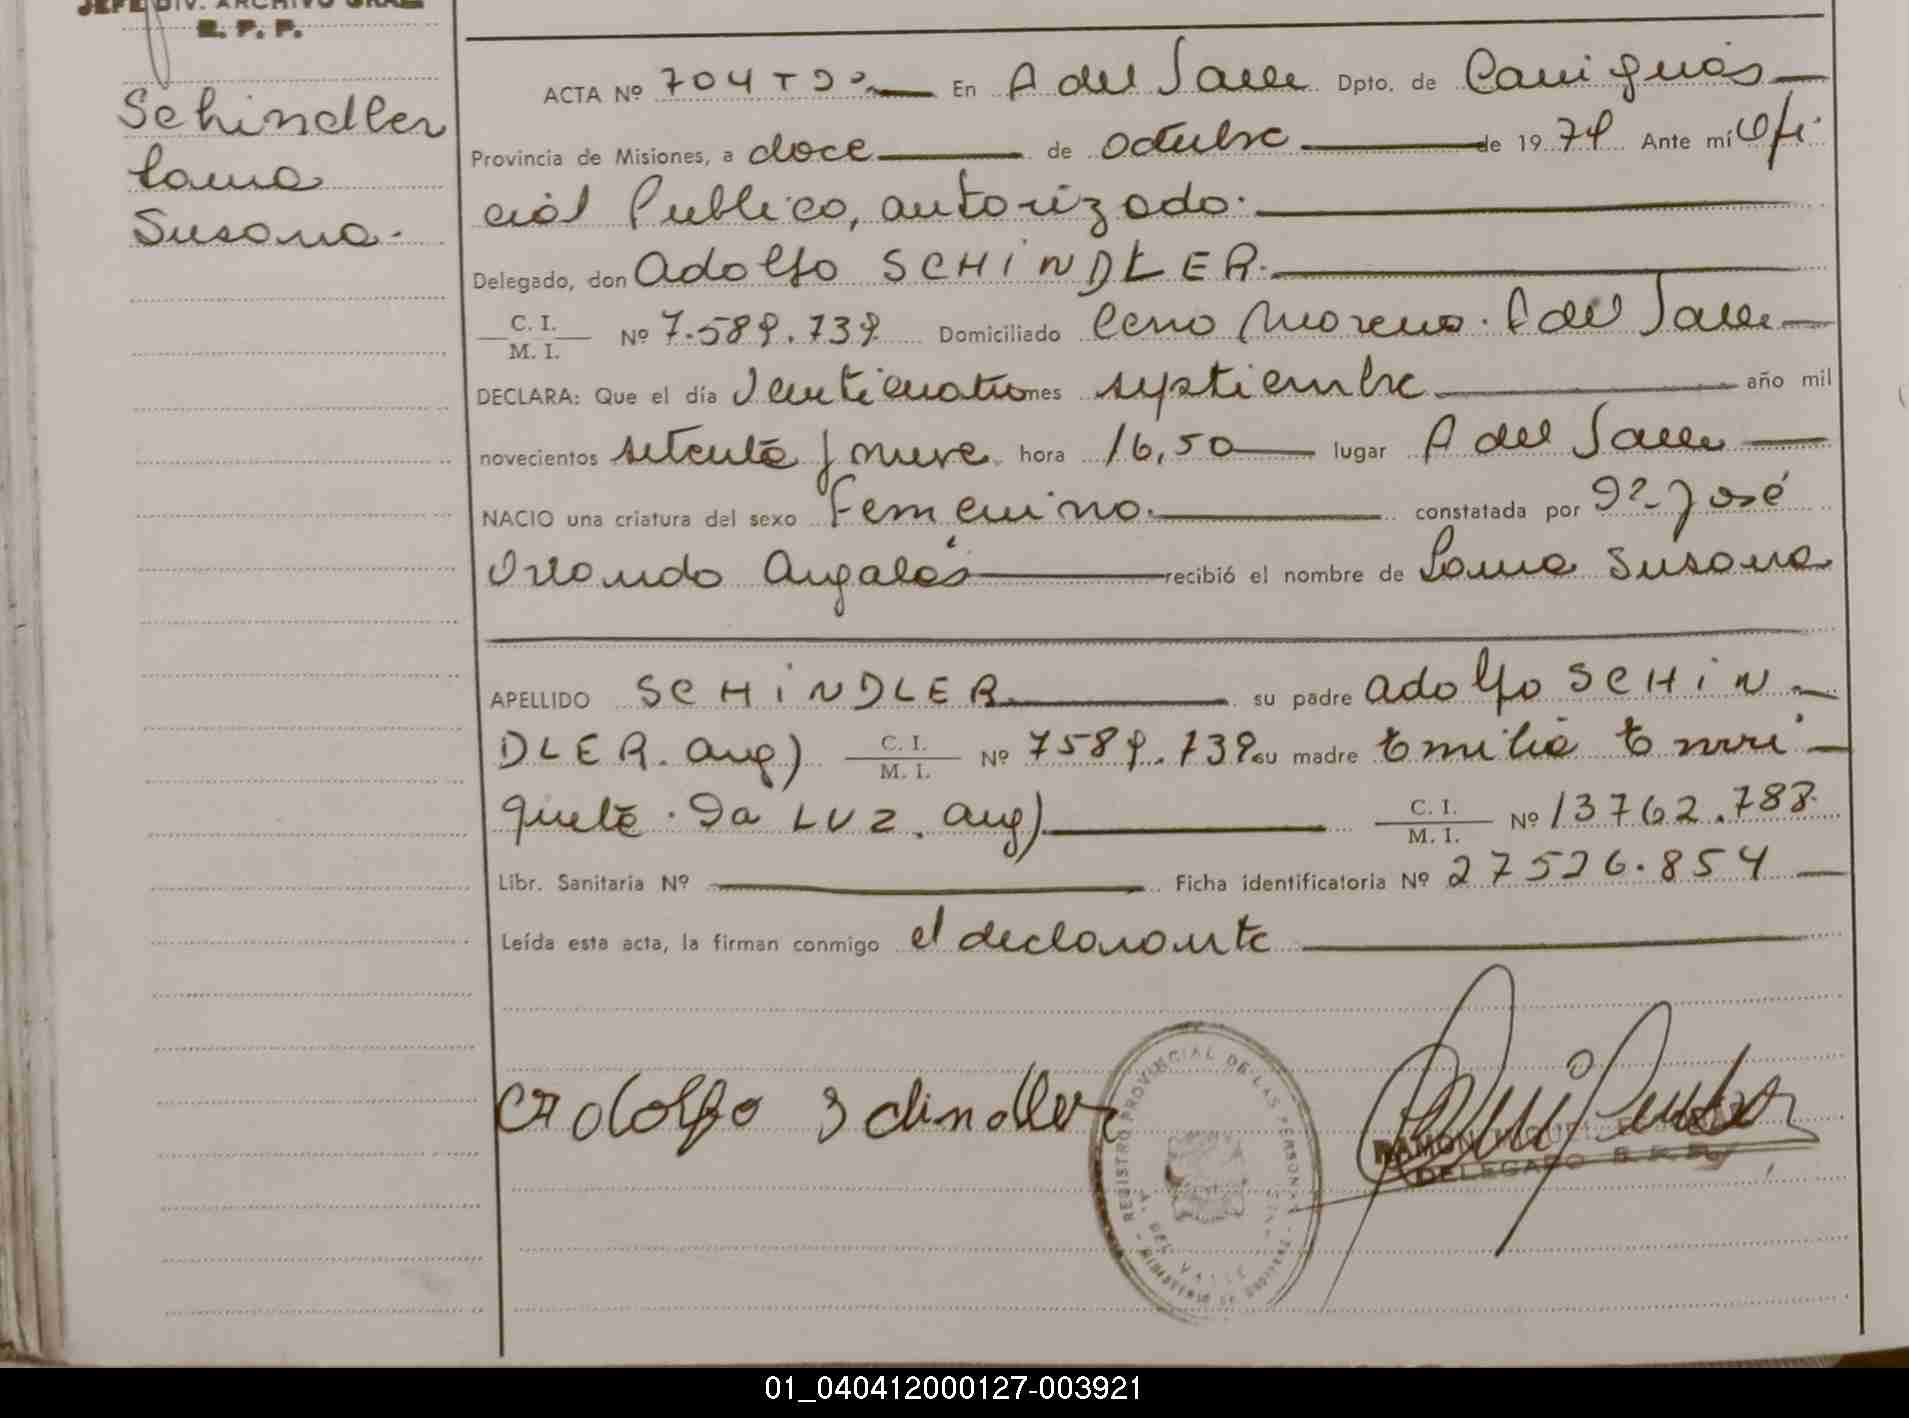 JEFE DIV. ARCHIVO GRAL
R. P. P.
Schindler
Laura
Susana.
ACTA Nº 704 Tº 2º En A del Valle Dpto. de Cainguás
Provincia de Misiones, a doce de octubre de 1979 Ante mí Ofi
cial Publico, autorizado.
Delegado, don Adolfo SCHiNDLER.
C. I. / M. I. Nº 7.589.739 Domiciliado Cerro Moreno. A del Valle
DECLARA: Que el día Veinticuatro mes septiembre año mil
novecientos setenta y nueve hora 16,50 lugar A del Valle
NACIO una criatura del sexo Femenino. constatada por Dº José
Orlando recibió el nombre de Laura Susana
APELLIDO SCHiNDLER su padre Adolfo SCHiN-
DLER. arg) C. I. / M. I. Nº 7589.739 su madre Emilia Enri-
queta. Da LUZ. arg) C. I. / M. I. Nº 13762.788
Libr. Sanitaria Nº Ficha identificatoria Nº 27526.854
Leída esta acta, la firman conmigo el declarante
Adolfo Schindler
REGISTRO PROVINCIAL DE LAS PERSONAS
DEL VALLE
RAMON
DELEGADO R. P. P.
01_040412000127-003921